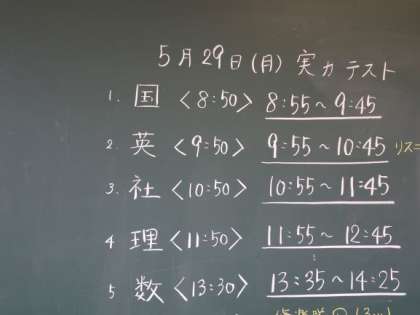 5月29日(月) 実力テスト
1. 国 <8:50> 8:55〜9:45
2. 英 <9:50> 9:55〜10:45 リスニ
3. 社 <10:50> 10:55〜11:45
4 理 <11:50> 11:55〜12:45
5 数 <13:30> 13:35〜14:25